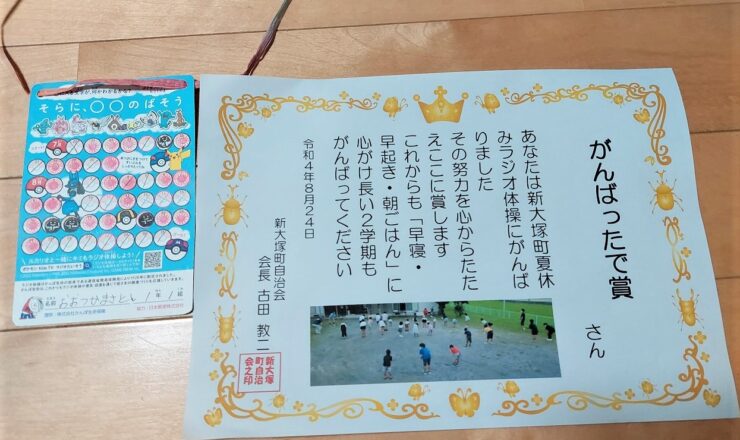 そらに、〇〇のばそう
ルカリオと一緒にキミもラジオ体操しよう!
ポケモン Kids TV ラジオたいそう
名前
おおつかまさとし
1年
1組
がんばったで賞
さん
あなたは新大塚町夏休
みラジオ体操にがんば
りました
その努力を心からたた
えここに賞します
これからも「早寝・
早起き・朝ごはん」に
心がけ長い2学期も
がんばってください
令和4年8月24日
新大塚町自治会
会長 古田 教二
新大塚
町自治
会之印